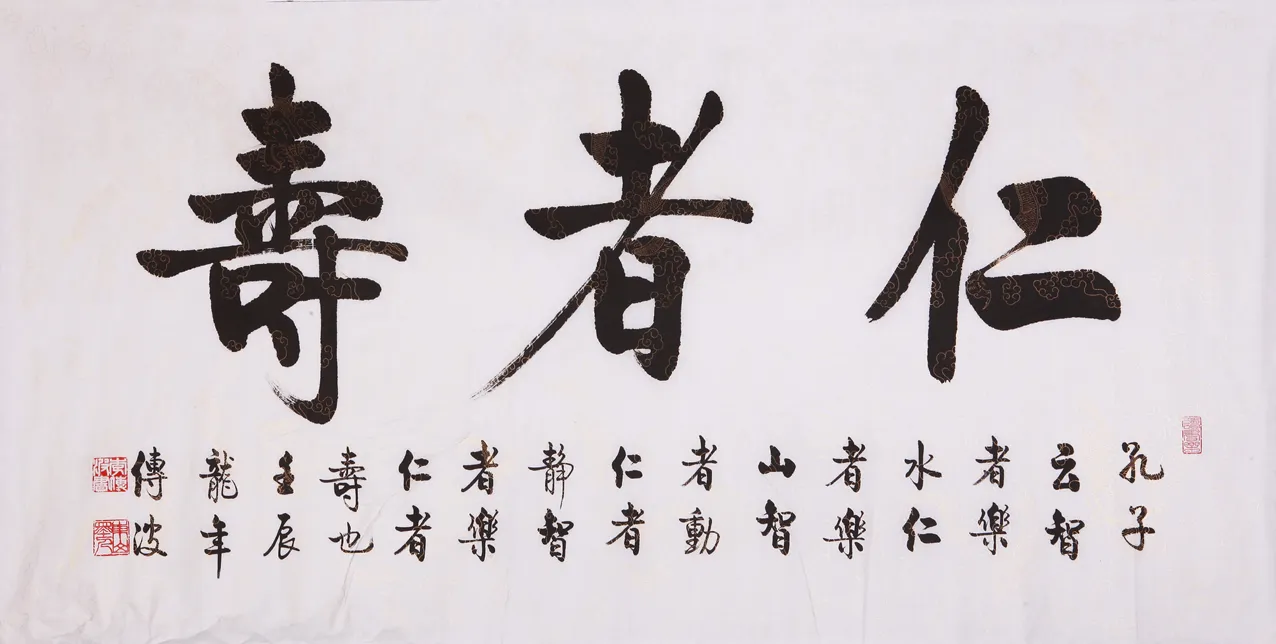 仁者壽
孔子
云智
者樂
水仁
者樂
山智
者動
仁者
靜智
者樂
仁者
壽也
壬辰
龍年
傳波